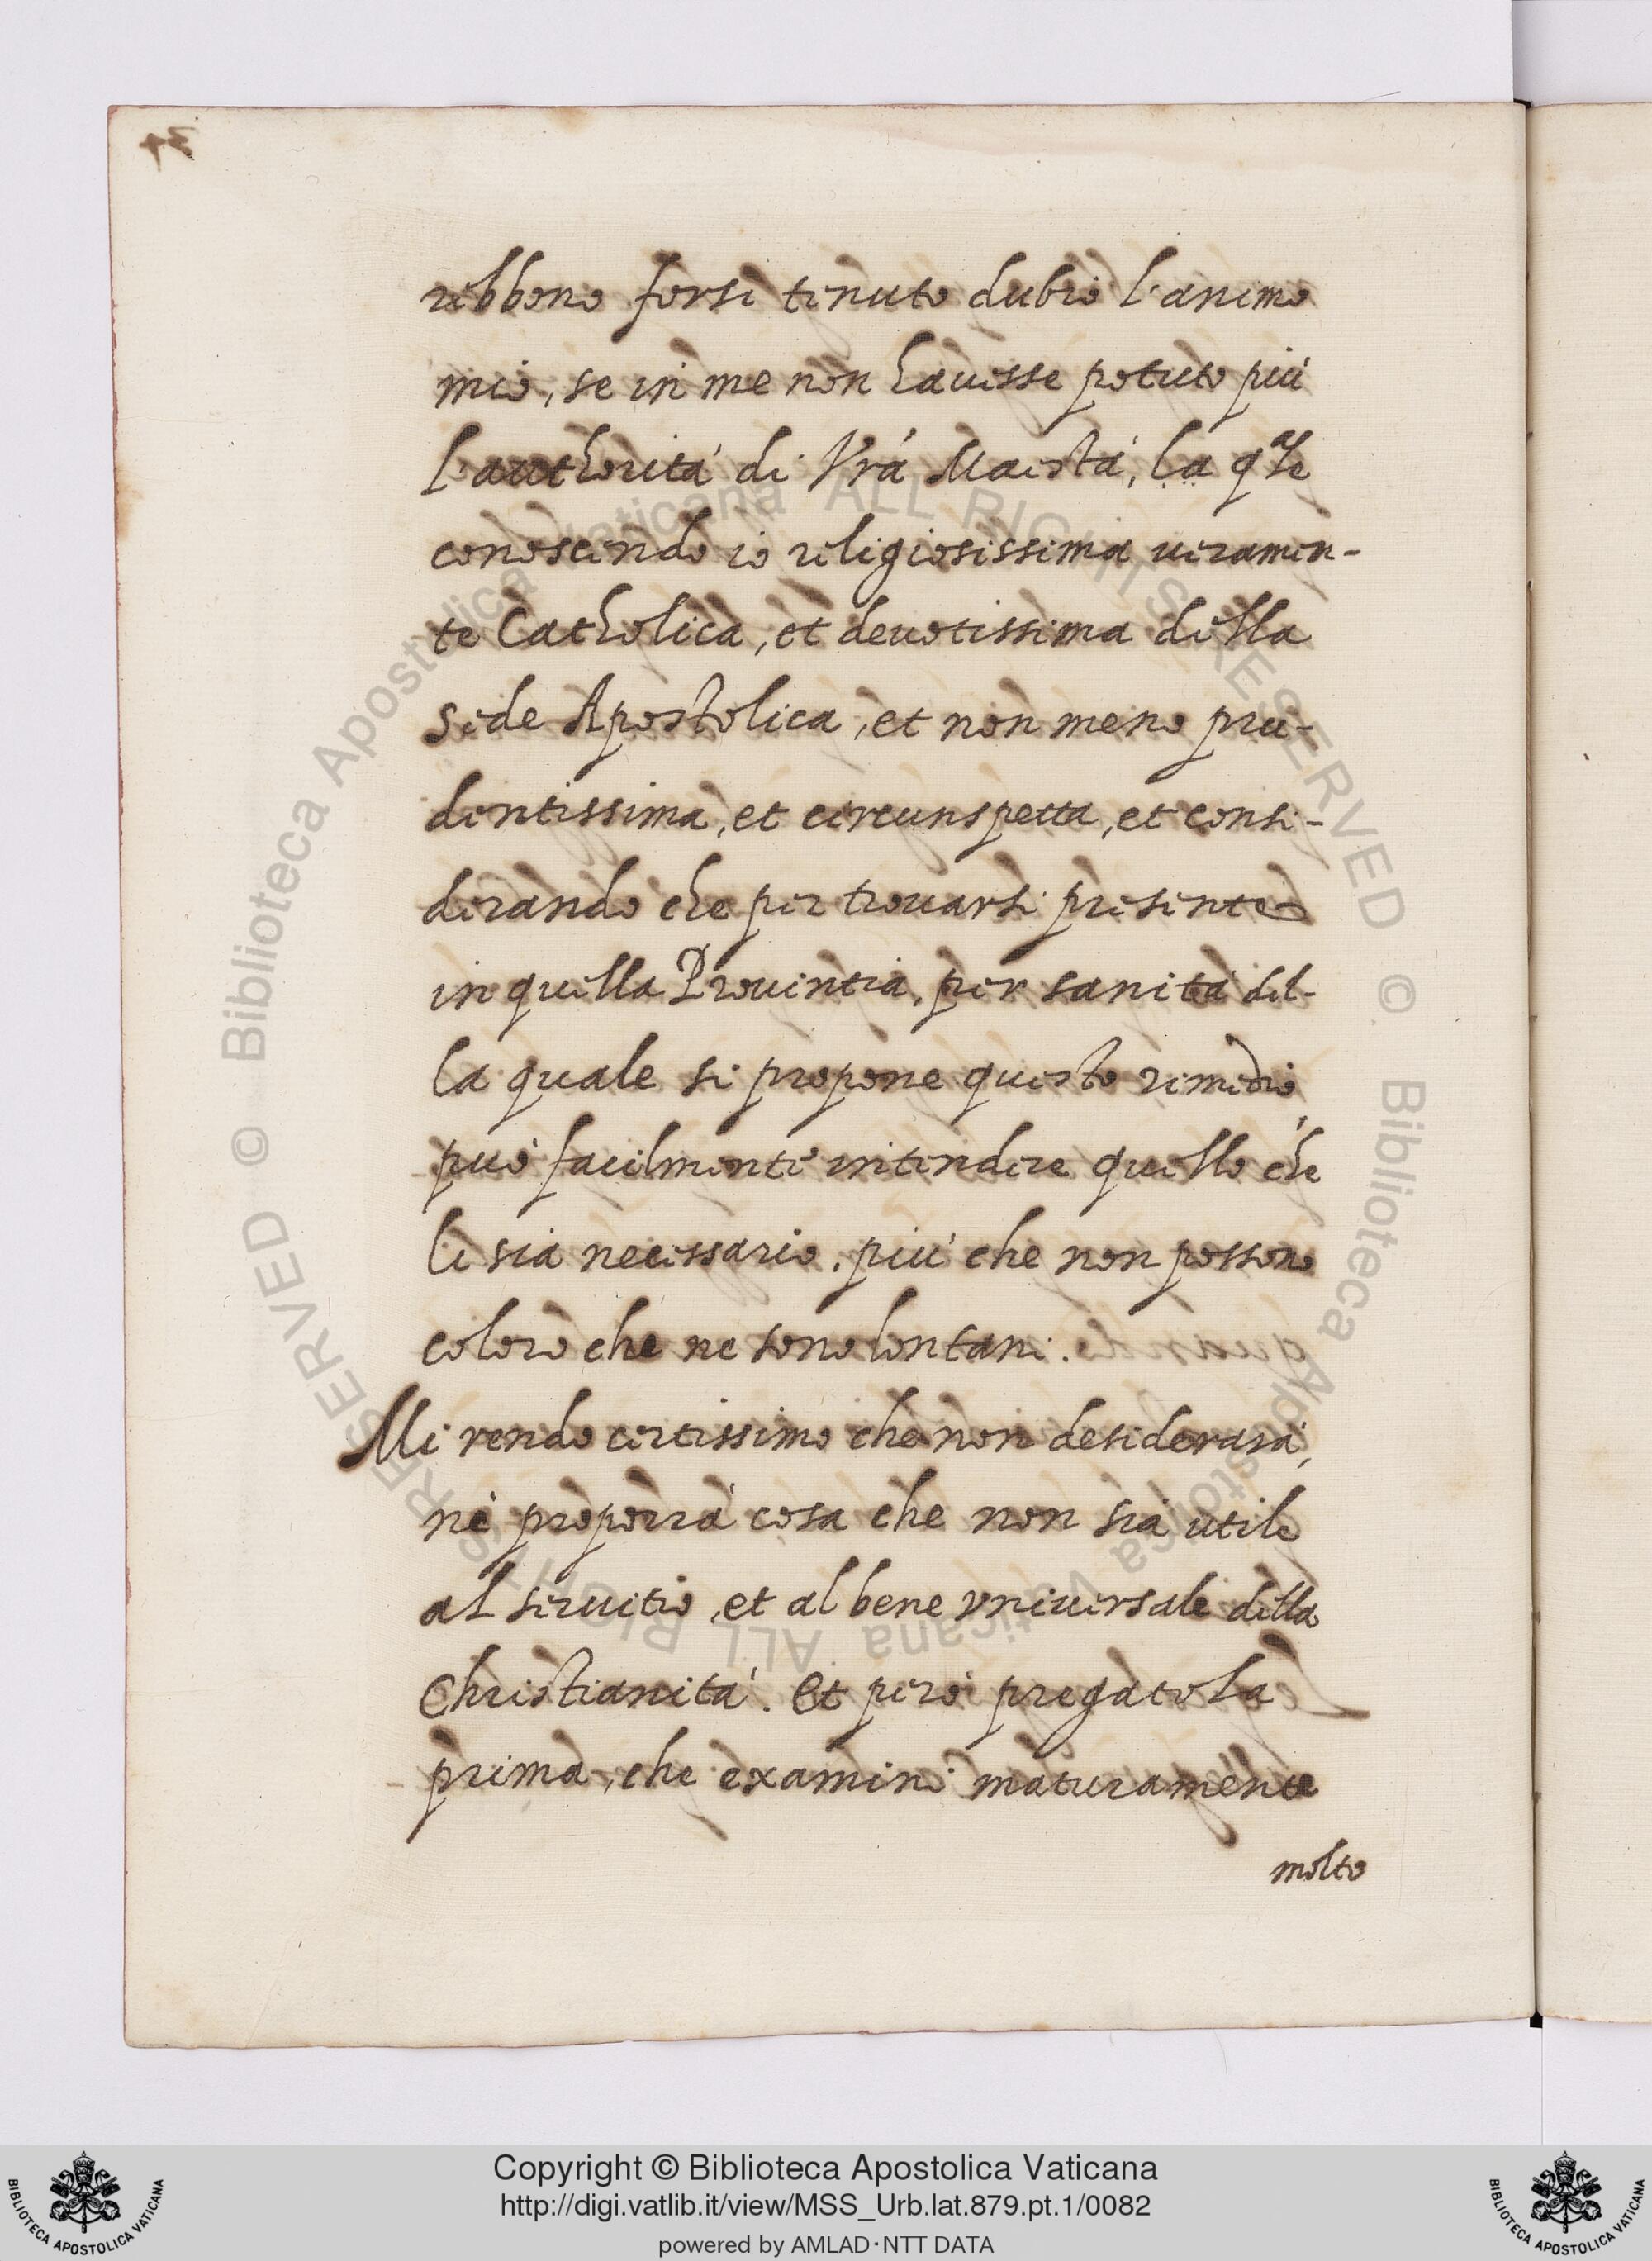 rebbono forsi tenuto dubio l'animo
mio, se in me non hauesse potuto piú
l'authoritá di Vrá Maestá, la qale
conoscendo io religiosissima ueramen-
te Catholica, et deuotissima della
sede Apostolica, et non meno pru-
dentissima, et circunspetta, et consi-
derando che per trouarsi presente
in quella Prouintia, per sanitá del-
la quale si propone questo rimedio,
può facilmente intendere quello che
le sia necessario, piú che non possono
coloro che ne sono lontani.
Mi rendo certissimo che non desiderará,
né proporrá cosa che non sia utile
al seruitio, et al bene vniuersale della
Christianitá. Et peró pregatola
prima, che examini maturamente
molto
© Biblioteca Apostolica Vaticana ALL RIGHTS RESERVED © Biblioteca Apostolica Vaticana ALL RIGHTS RESERVED
Copyright © Biblioteca Apostolica Vaticana
http://digi.vatlib.it/view/MSS_Urb.lat.879.pt.1/0082
powered by AMLAD·NTT DATA
BIBLIOTECA APOSTOLICA VATICANA
BIBLIOTECA APOSTOLICA VATICANA